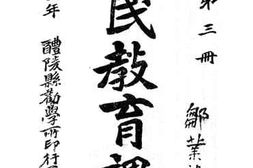 第三冊
鄒業
民教育課
年
醴陵縣勸學所印行